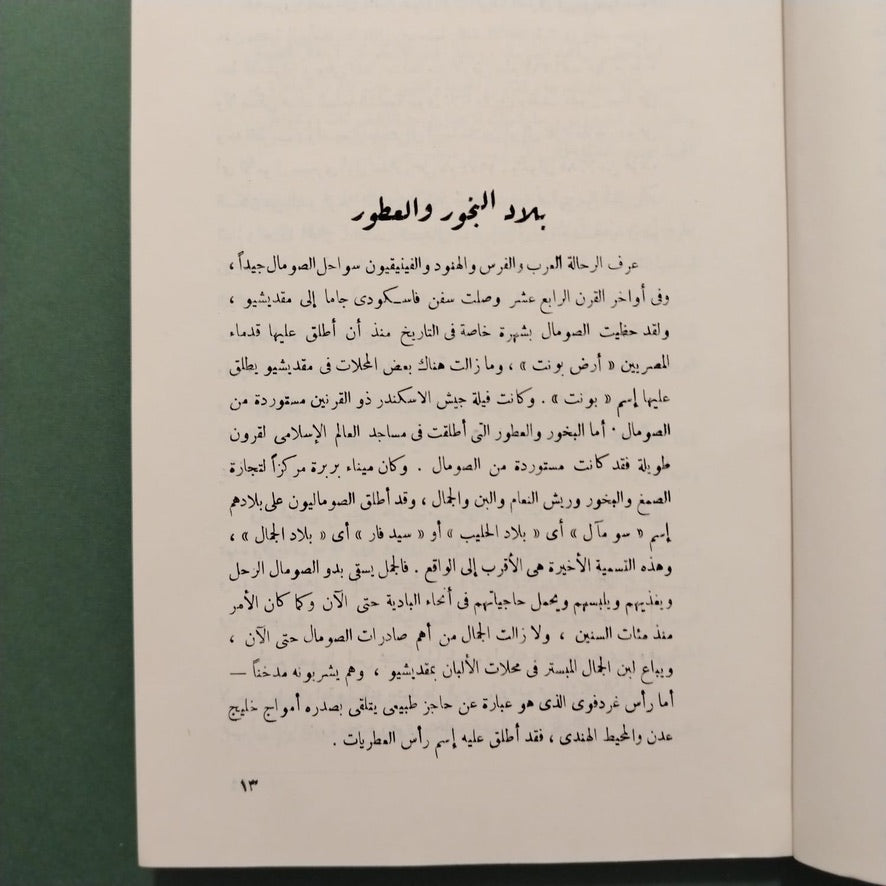 بلاد البخور والعطور
عرف الرحالة العرب والفرس والهنود والفينيقيون سواحل الصومال جيداً ،
وفى أواخر القرن الرابع عشر وصلت سفن فاسكودى جاما إلى مقديشيو ،
ولقد حظيت الصومال بشهرة خاصة فى التاريخ منذ أن أطلق عليها قدماء
المصريين « أرض بونت » ، وما زالت هناك بعض المحلات فى مقديشيو يطلق
عليها إسم « بونت » . وكانت فيلة جيش الاسكندر ذو القرنين مستوردة من
الصومال . أما البخور والعطور التى أطلقت فى مساجد العالم الإسلامى لقرون
طويلة فقد كانت مستوردة من الصومال . وكان ميناء بربرة مركزاً لتجارة
الصمغ والبخور وريش النعام والبن والجمال ، وقد أطلق الصوماليون على بلادهم
إسم « سو مآل » أى « بلاد الحليب » أو « سيد فار » أى « بلاد الجمال » ،
وهذه التسمية الأخيرة هى الأقرب إلى الواقع . فالجمل يسقى بدو الصومال الرحل
ويغذيهم ويلبسهم ويحمل حاجياتهم فى أنحاء البادية حتى الآن وكما كان الأمر
منذ مئات السنين ، ولا زالت الجمال من أهم صادرات الصومال حتى الآن ،
ويباع لبن الجمال المبستر فى محلات الألبان بمقديشيو ، وهم يشربونه مدخناً —
أما رأس غردفوى الذى هو عبارة عن حاجز طبيعى يتلقى بصدره أمواج خليج
عدن والمحيط الهندى ، فقد أطلق عليه إسم رأس العطريات .
١٣